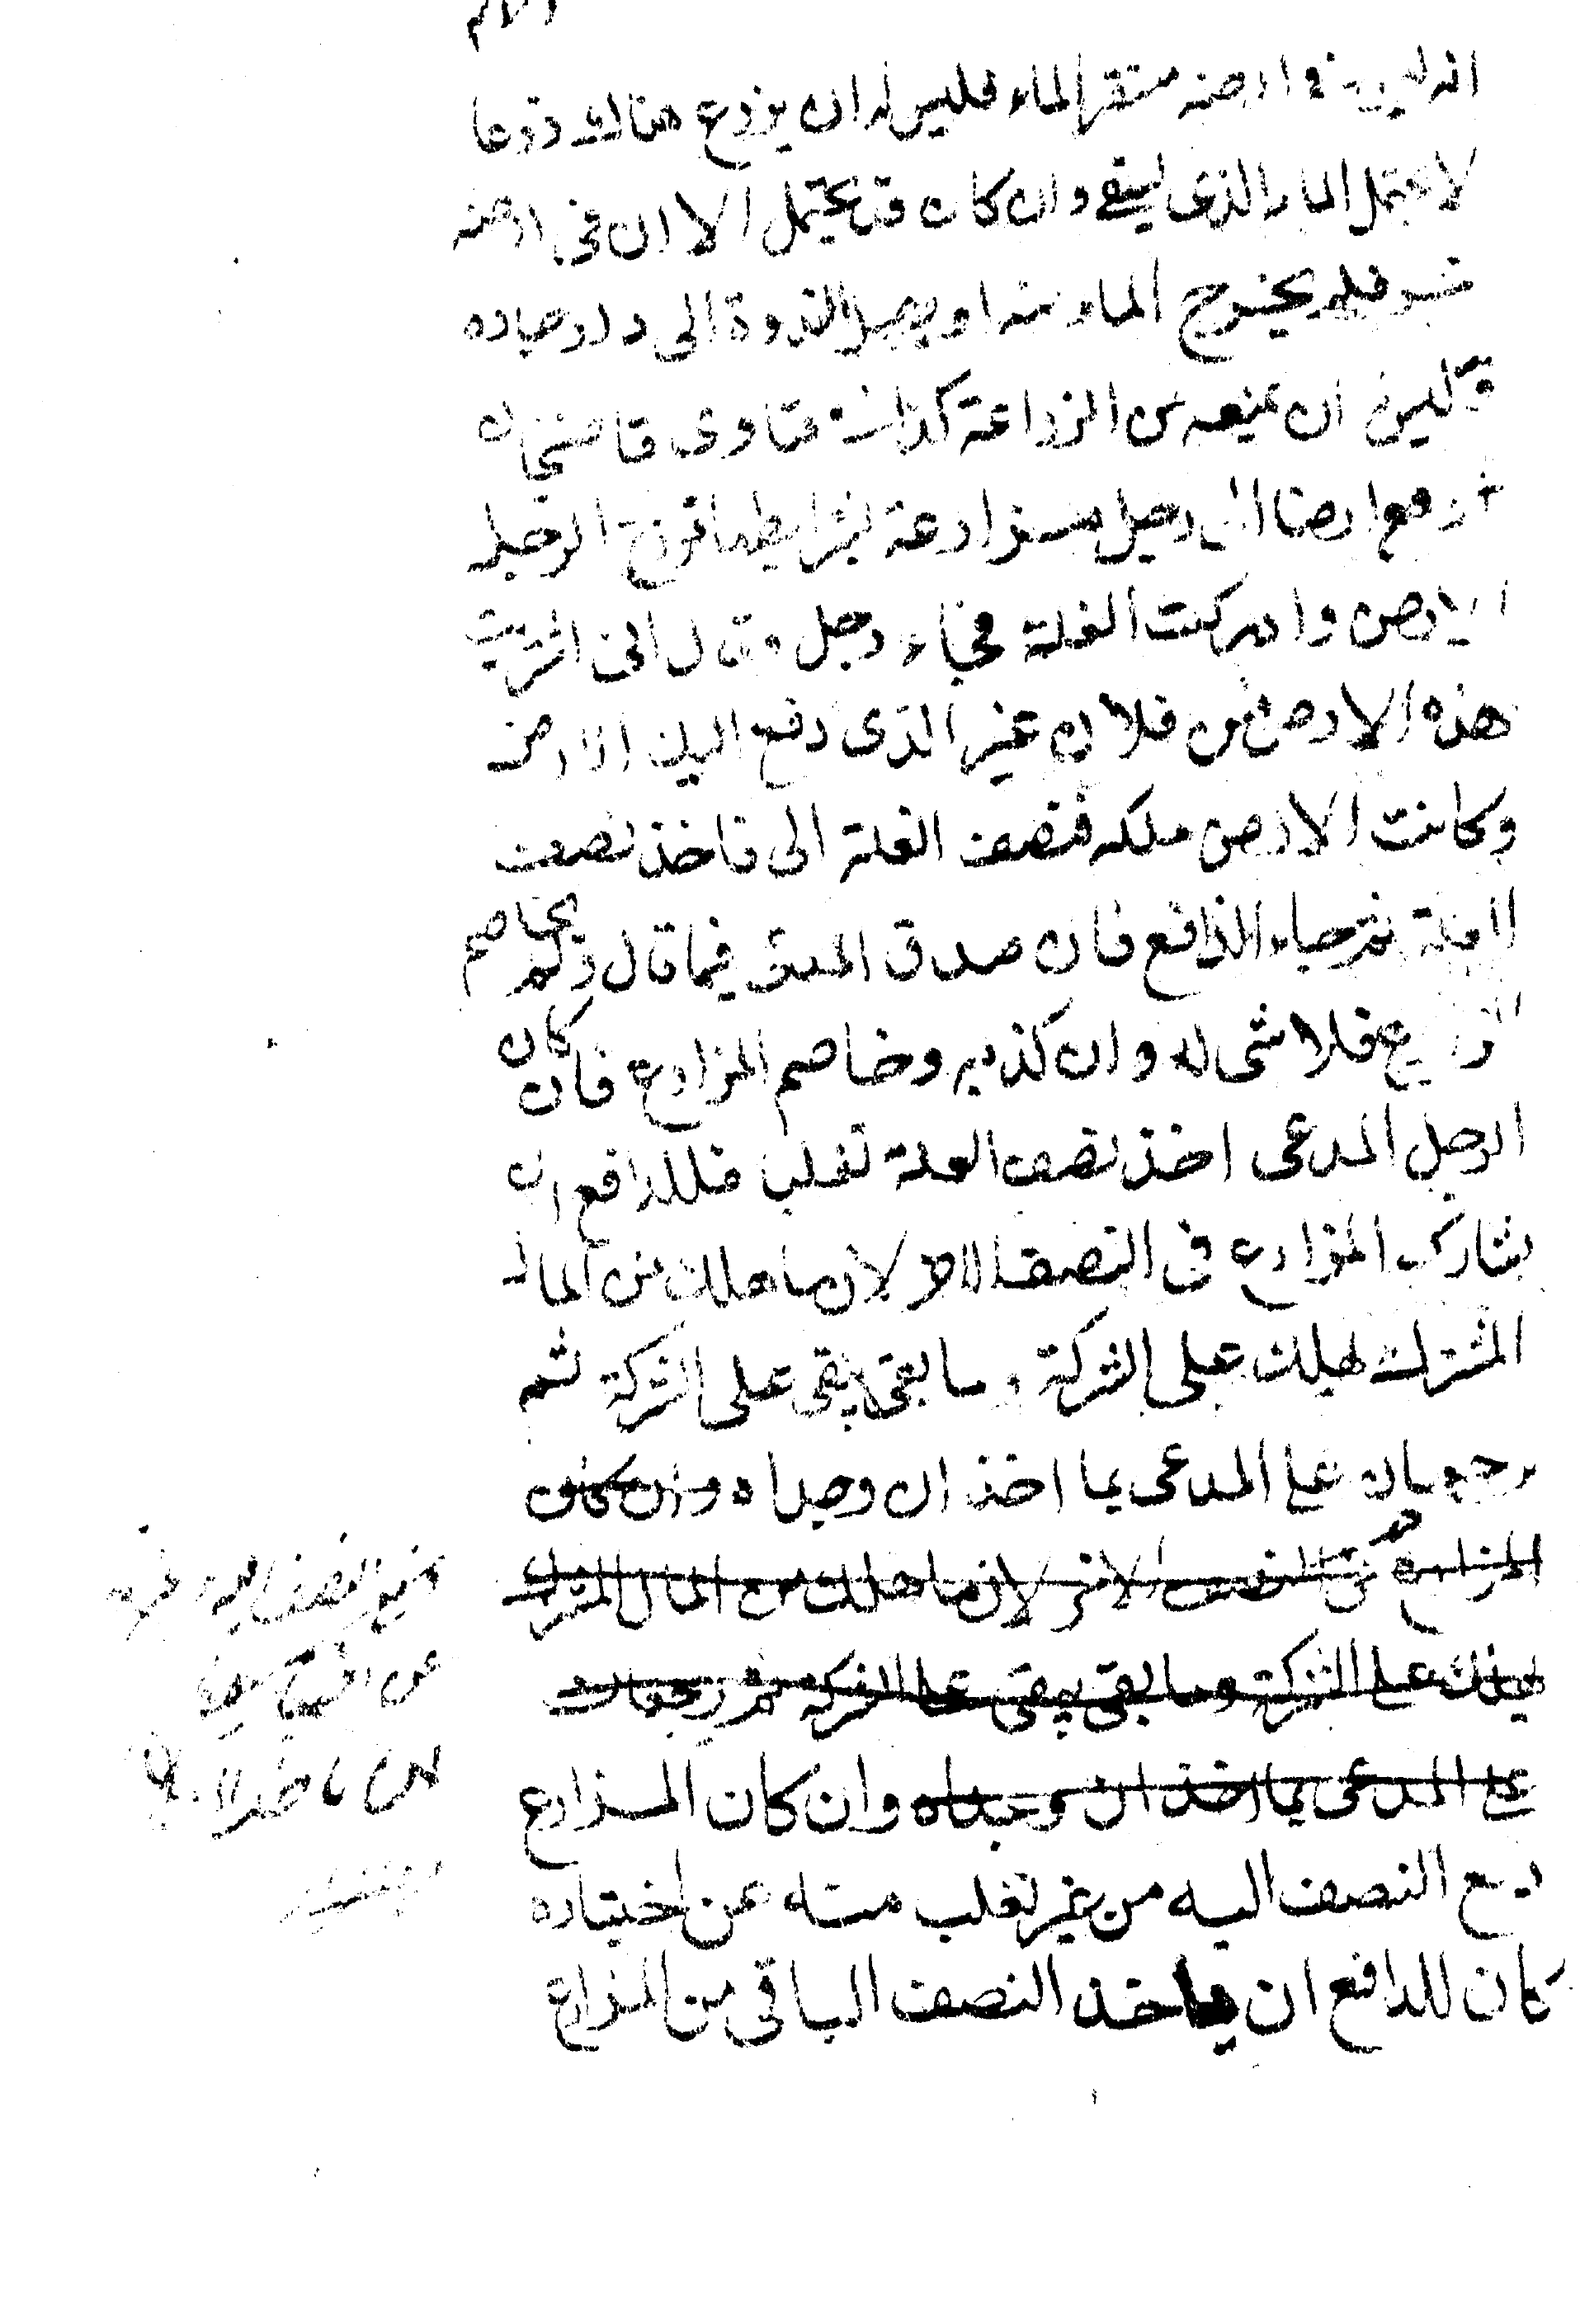 انه ليس في ارضه مستقر الماء فليس له ان يزرع هناك زرعا
لا يحتمل الماء الذي يسقى وان كان قد يحتمل الا ان في ارضه
يخرج الماء منه او يصل النزوة الى دار جاره
فليس ان يمنعه من الزراعة كذا في فتاوى قاضيخان
دفع ارضا الى رجل مزارعة بشرايطها فزرع الرجل
الارض وادركت الغلة فجاء رجل وقال اني اشتريت
هذه الارض من فلان غير الذي دفع اليك الارض
وكانت الارض ملكه فنصف الغلة الى فاخذ نصف
الغلة ثم جاء الدافع فان صدق المدعى فيما قال ولم يخاصم
المزارع فلا شى له وان كذبه وخاصم المزارع فان كان
الرجل المدعى اخذ نصف الغلة تغلبا فللدافع ان
يشارك المزارع في النصف الاخر لان ما هلك من المال
المشترك يهلك على الشركة وما بقى يبقى على الشركة ثم
يرجعان على المدعى بما اخذ ان وجداه وان كان
المزارع في النصف الاخر لان ما هلك من المال المشترك
يهلك على الشركة وما بقى يبقى على الشركة ثم يرجعان
على المدعى بما اخذ ان وجداه وان كان المزارع
دفع النصف اليه من غير تغلب منه عن اختياره
كان للدافع ان ياخذ النصف الباقي من المزارع